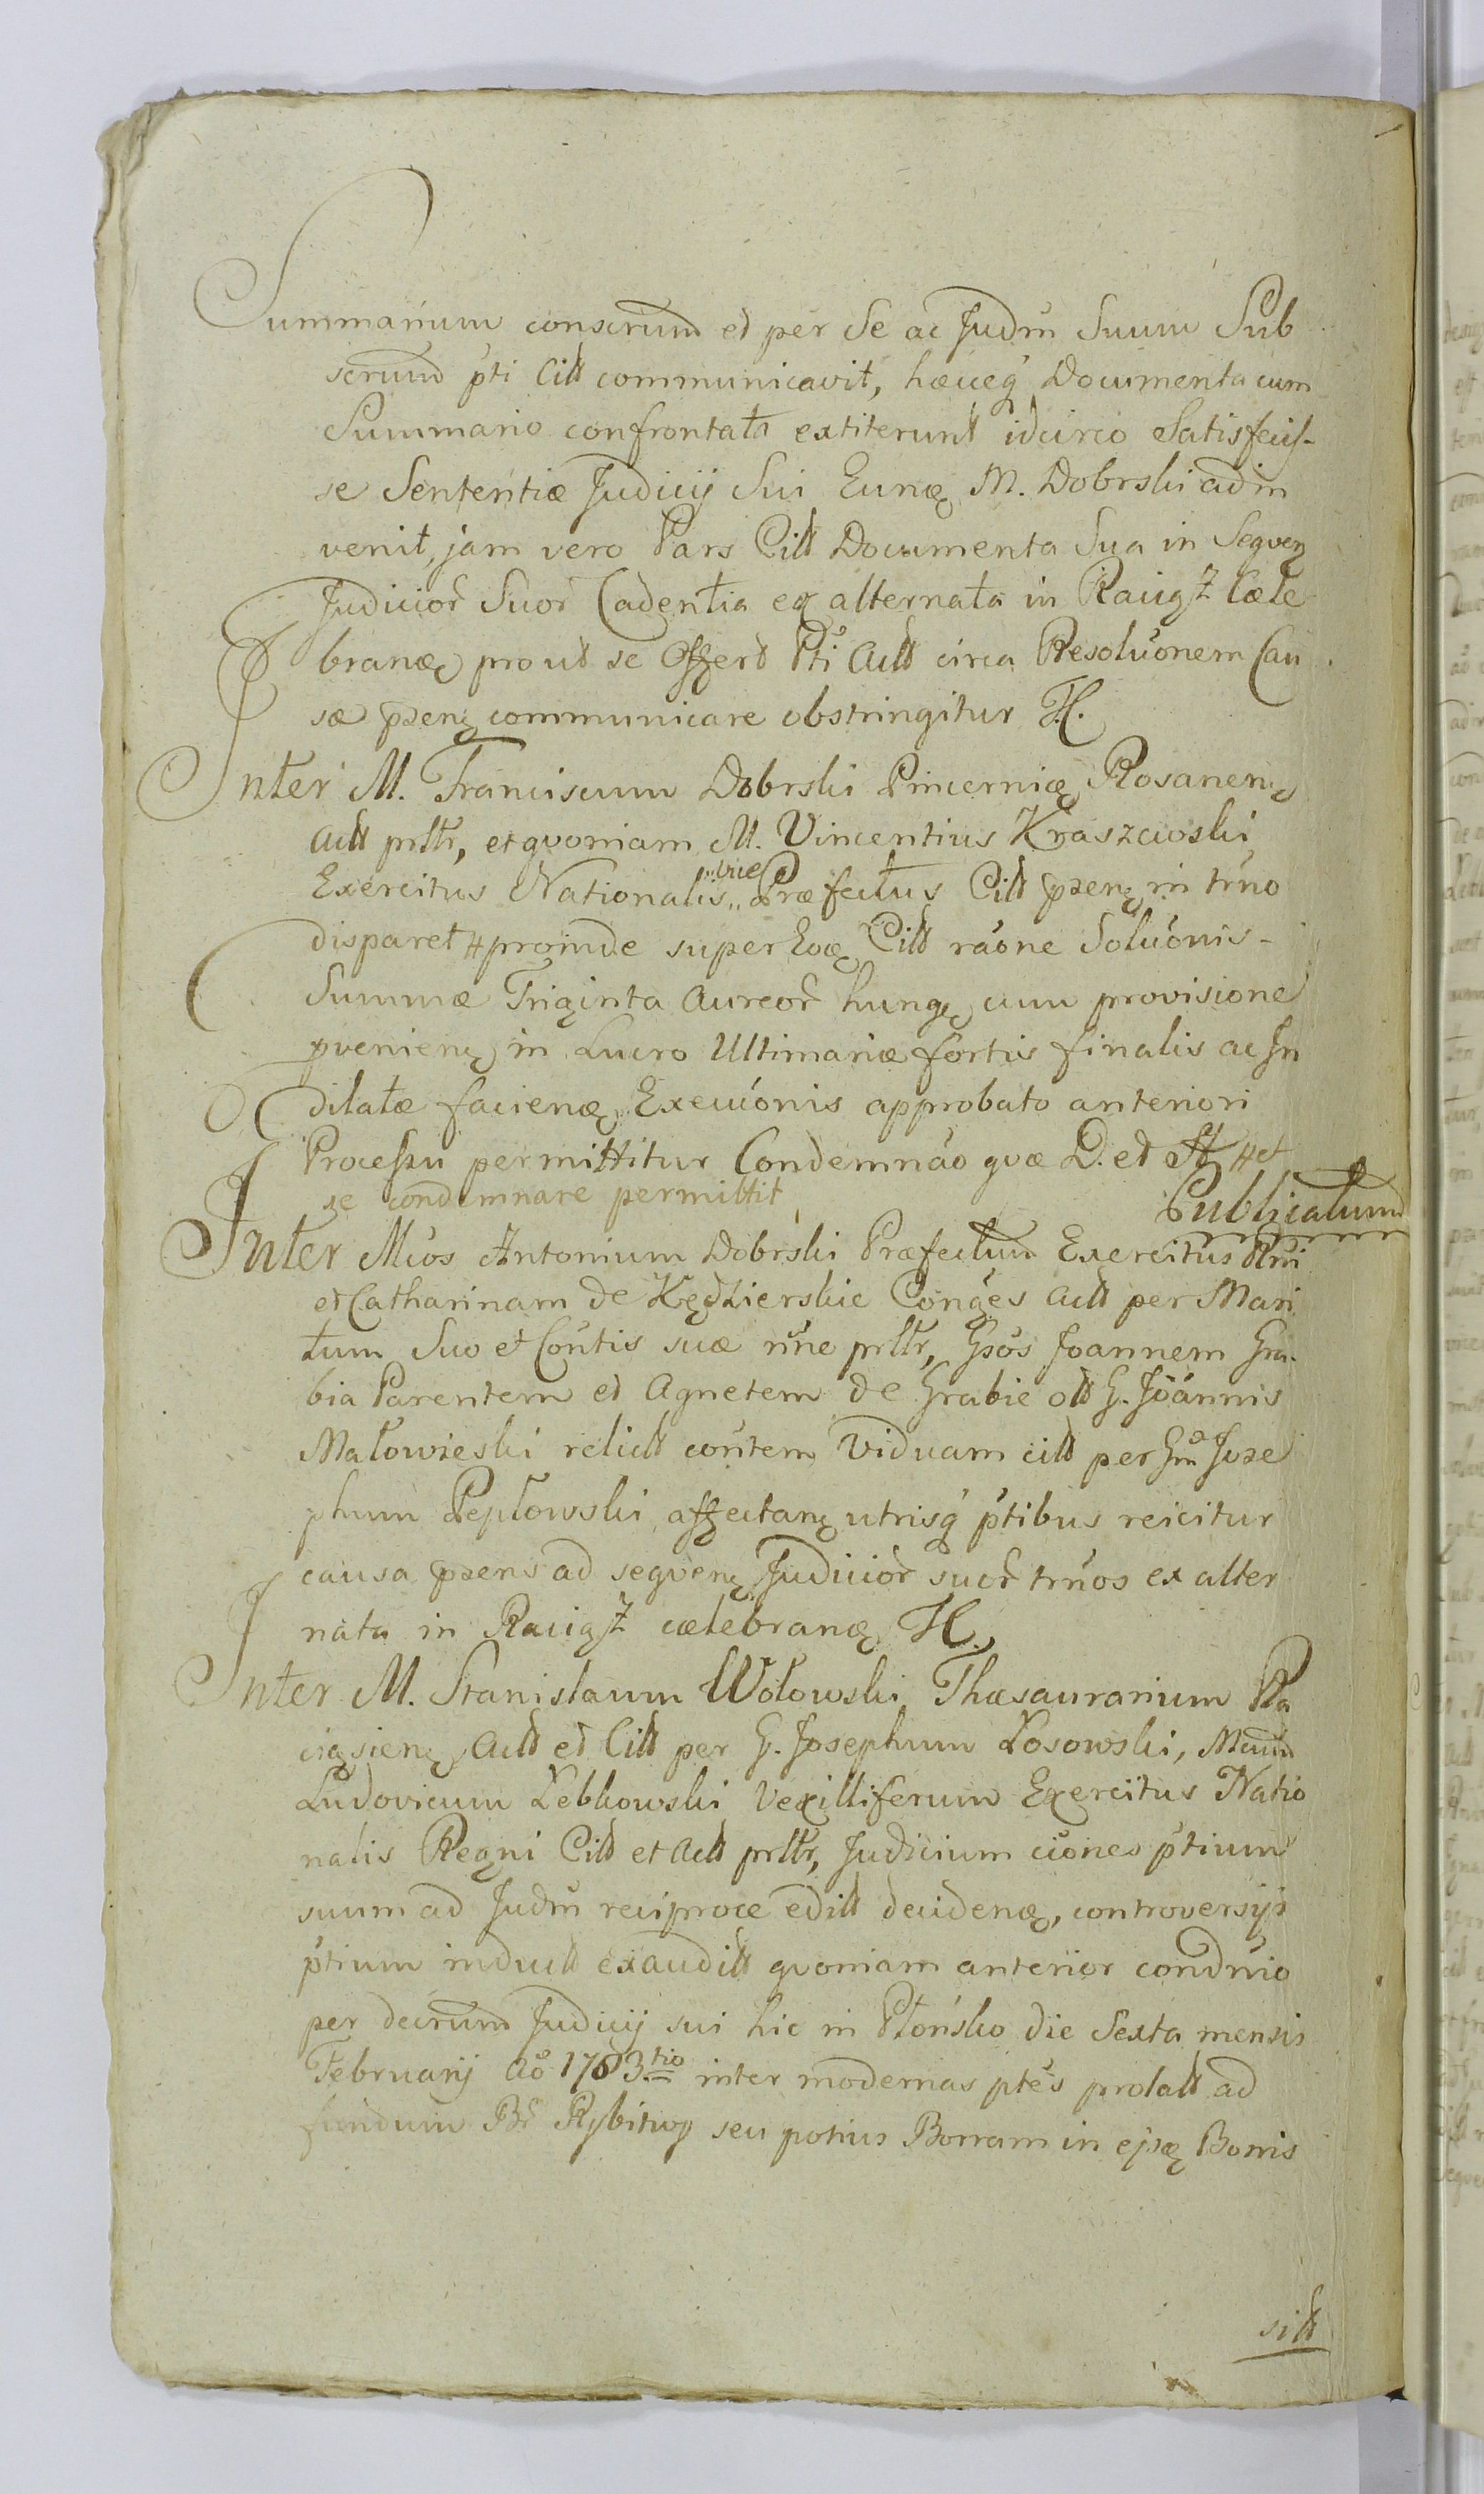 Summarium conscrum̃ et per Se ac Judm̃ Suum Sub
scrum̃ pti Citt communicavit, hæceq́ Documenta cum
Summario confrontata extiterunt idcirco Satisfecis-
se Sententiæ Judicij Sui Eunḍ M. Dobrski adin
venit, jam vero Pars Citt Documenta Sua in Seqven
Judicior̃ Suor̃ Cadentia ex alternata in Raciąż Cæle
branḍ prout se Offert Pti Actt circa Resolūonem Cau
sæ p̃zen communicare obstringitur H.
Inter M. Franciscum Dobrski Pincernię Rosanen
Actt prltr, et qvoniam M. Vincentius Kraszcioski
Exercitus Nationalis „vice" Præfectus Citt p̃zen in trño
disparet # proinde super Eoḍ Citt raōne Solūonis-
Summæ Triginta Aureor̃ hung cum provisione
pvenien in Lucro Ultimariæ fortis finalis ac In
dilatæ facienḍ Execūonis approbato anteriori
Processu permittitur Condemnāo qvæ D. et A #et
se condemnare permittit
Publicatum
Inter Mcos Antonium Dobrski Præfectum Exercitus Rni
et Catharinam de Kędzierskie Conges Actt per Mari
tum Suo et Contis suæ nne prltr, Gsos Joannem Gra-
bia Parentem et Agnetem de Grabie olt G. Joannis
Małowieski relictt contem Viduam citt per Gm Jose
phum Pepłowski, affectan utrisq́ ptibus reicitur
causa p̃zens ad seqven Judicior̃ suor̃ trños ex alter
nata in Raciąż cælebranḍ H.
Inter M. Stanislaum Wołowski Thæsaurarium Ra
ciąsien Actt et Citt per G. Josephum Łosowski, Mcum
Ludovicum Łebkowski Vexilliferum Exercitus Natio
nalis Regni Citt et Actt prltr, Judicium cioñes ptium
suum ad Judm̃ reciproce editt decidenḍ, controversijs
ptium inductt exauditt qvoniam anterior condnio
per decrum̃ Judicij sui hic in Płońsko die Sexta mensis
Februarij Ao 1783tio inter modernas ptes prolatt ad
fundum Br̃ Rybitwy seu potius Borram in ejsḍ Bonis
sitt